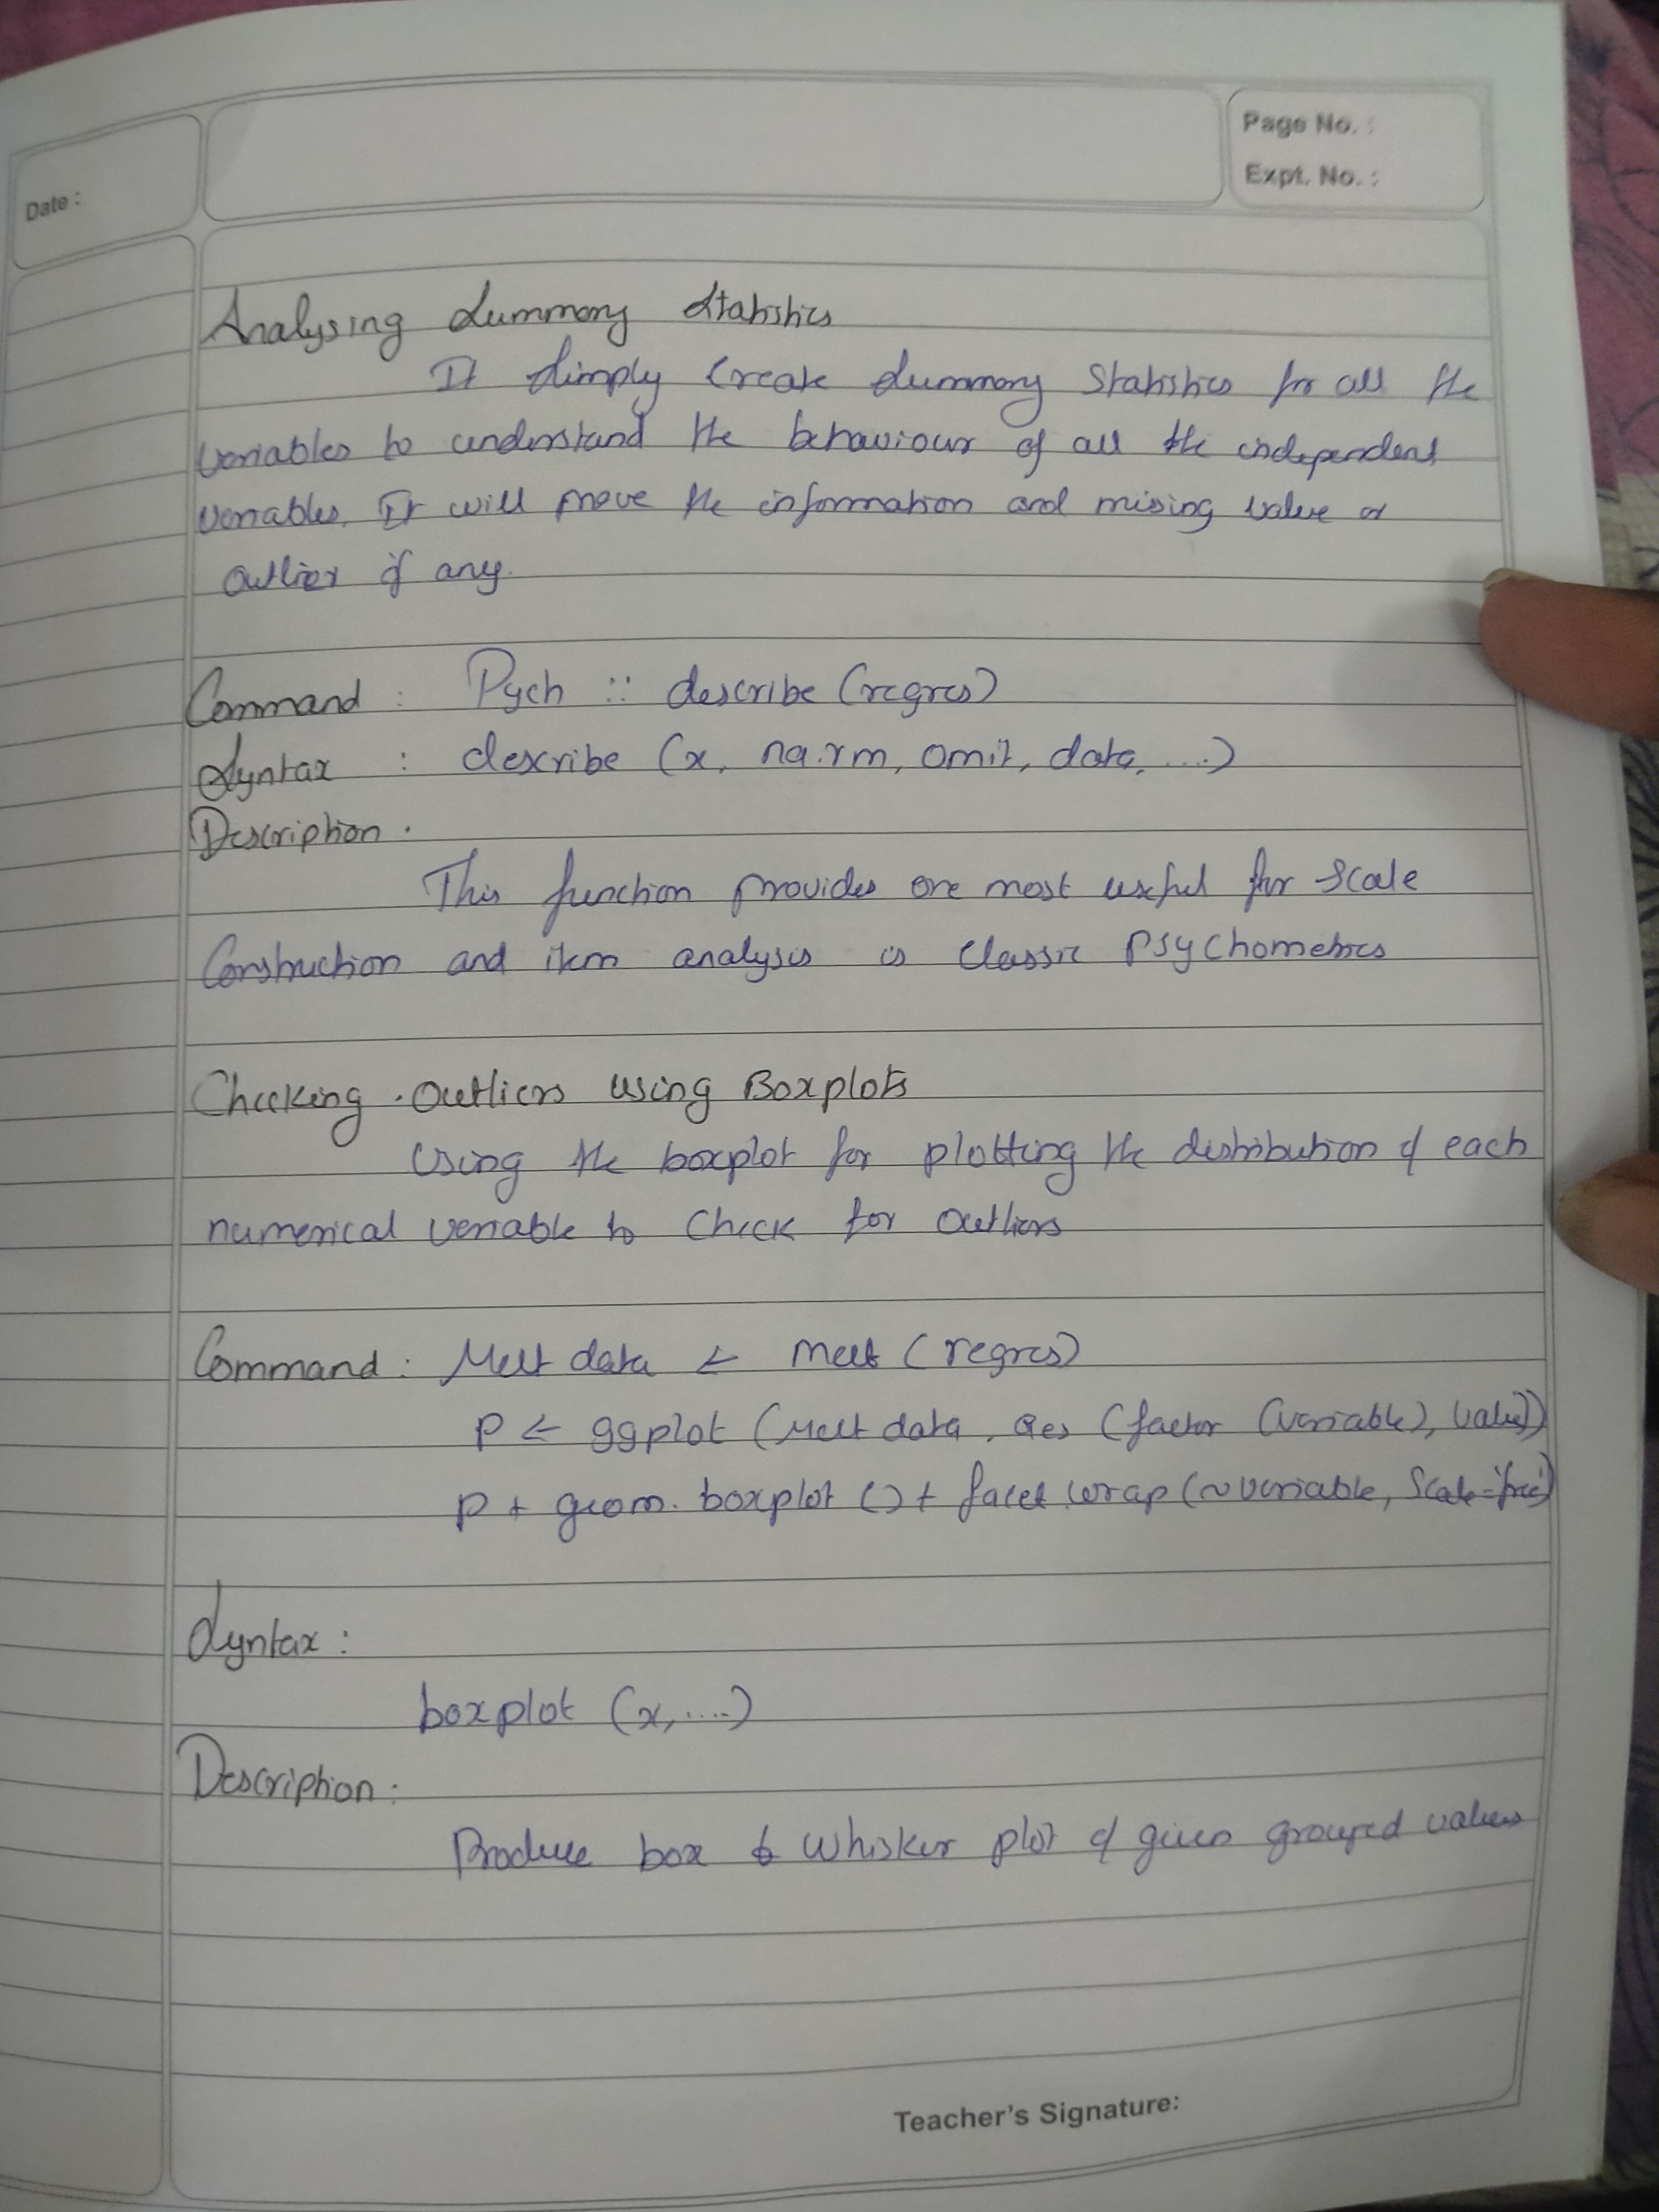 Page No. :
Expt. No. :
Date :
Analysing Summary Statistics
It simply Create Summary Statistics for all the
variables to understand the behaviour of all the independent
variables. It will prove the information and mising value or
outlier if any.
Command : Pych :: describe (regres)
Syntax : describe (x, na.rm, omit, data, ....)
Description .
This function provides one most useful for Scale
Construction and item analysis is Classic Psychometrics
Checking . Outliers using Boxplots
Using the boxplot for plotting the distribution of each
numerical variable to Check for Outliers
Command : Melt data ← melt (regres)
P ← ggplot (Melt data, aes (factor (variable), value))
P + geom. boxplot () + facet wrap (~variable, Scale='free')
Syntax :
boxplot (x, ....)
Description :
Produce box & Whisker plot of given grouped values
Teacher's Signature: